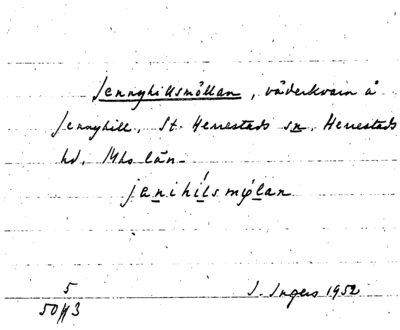 Jennyhillsmöllan, väderkvarn å
Jennyhill, St. Herrestads sn. Herrestads
hd. Mhs län.
janihílsmỳlan
5
50 3
I. Ingers 1952